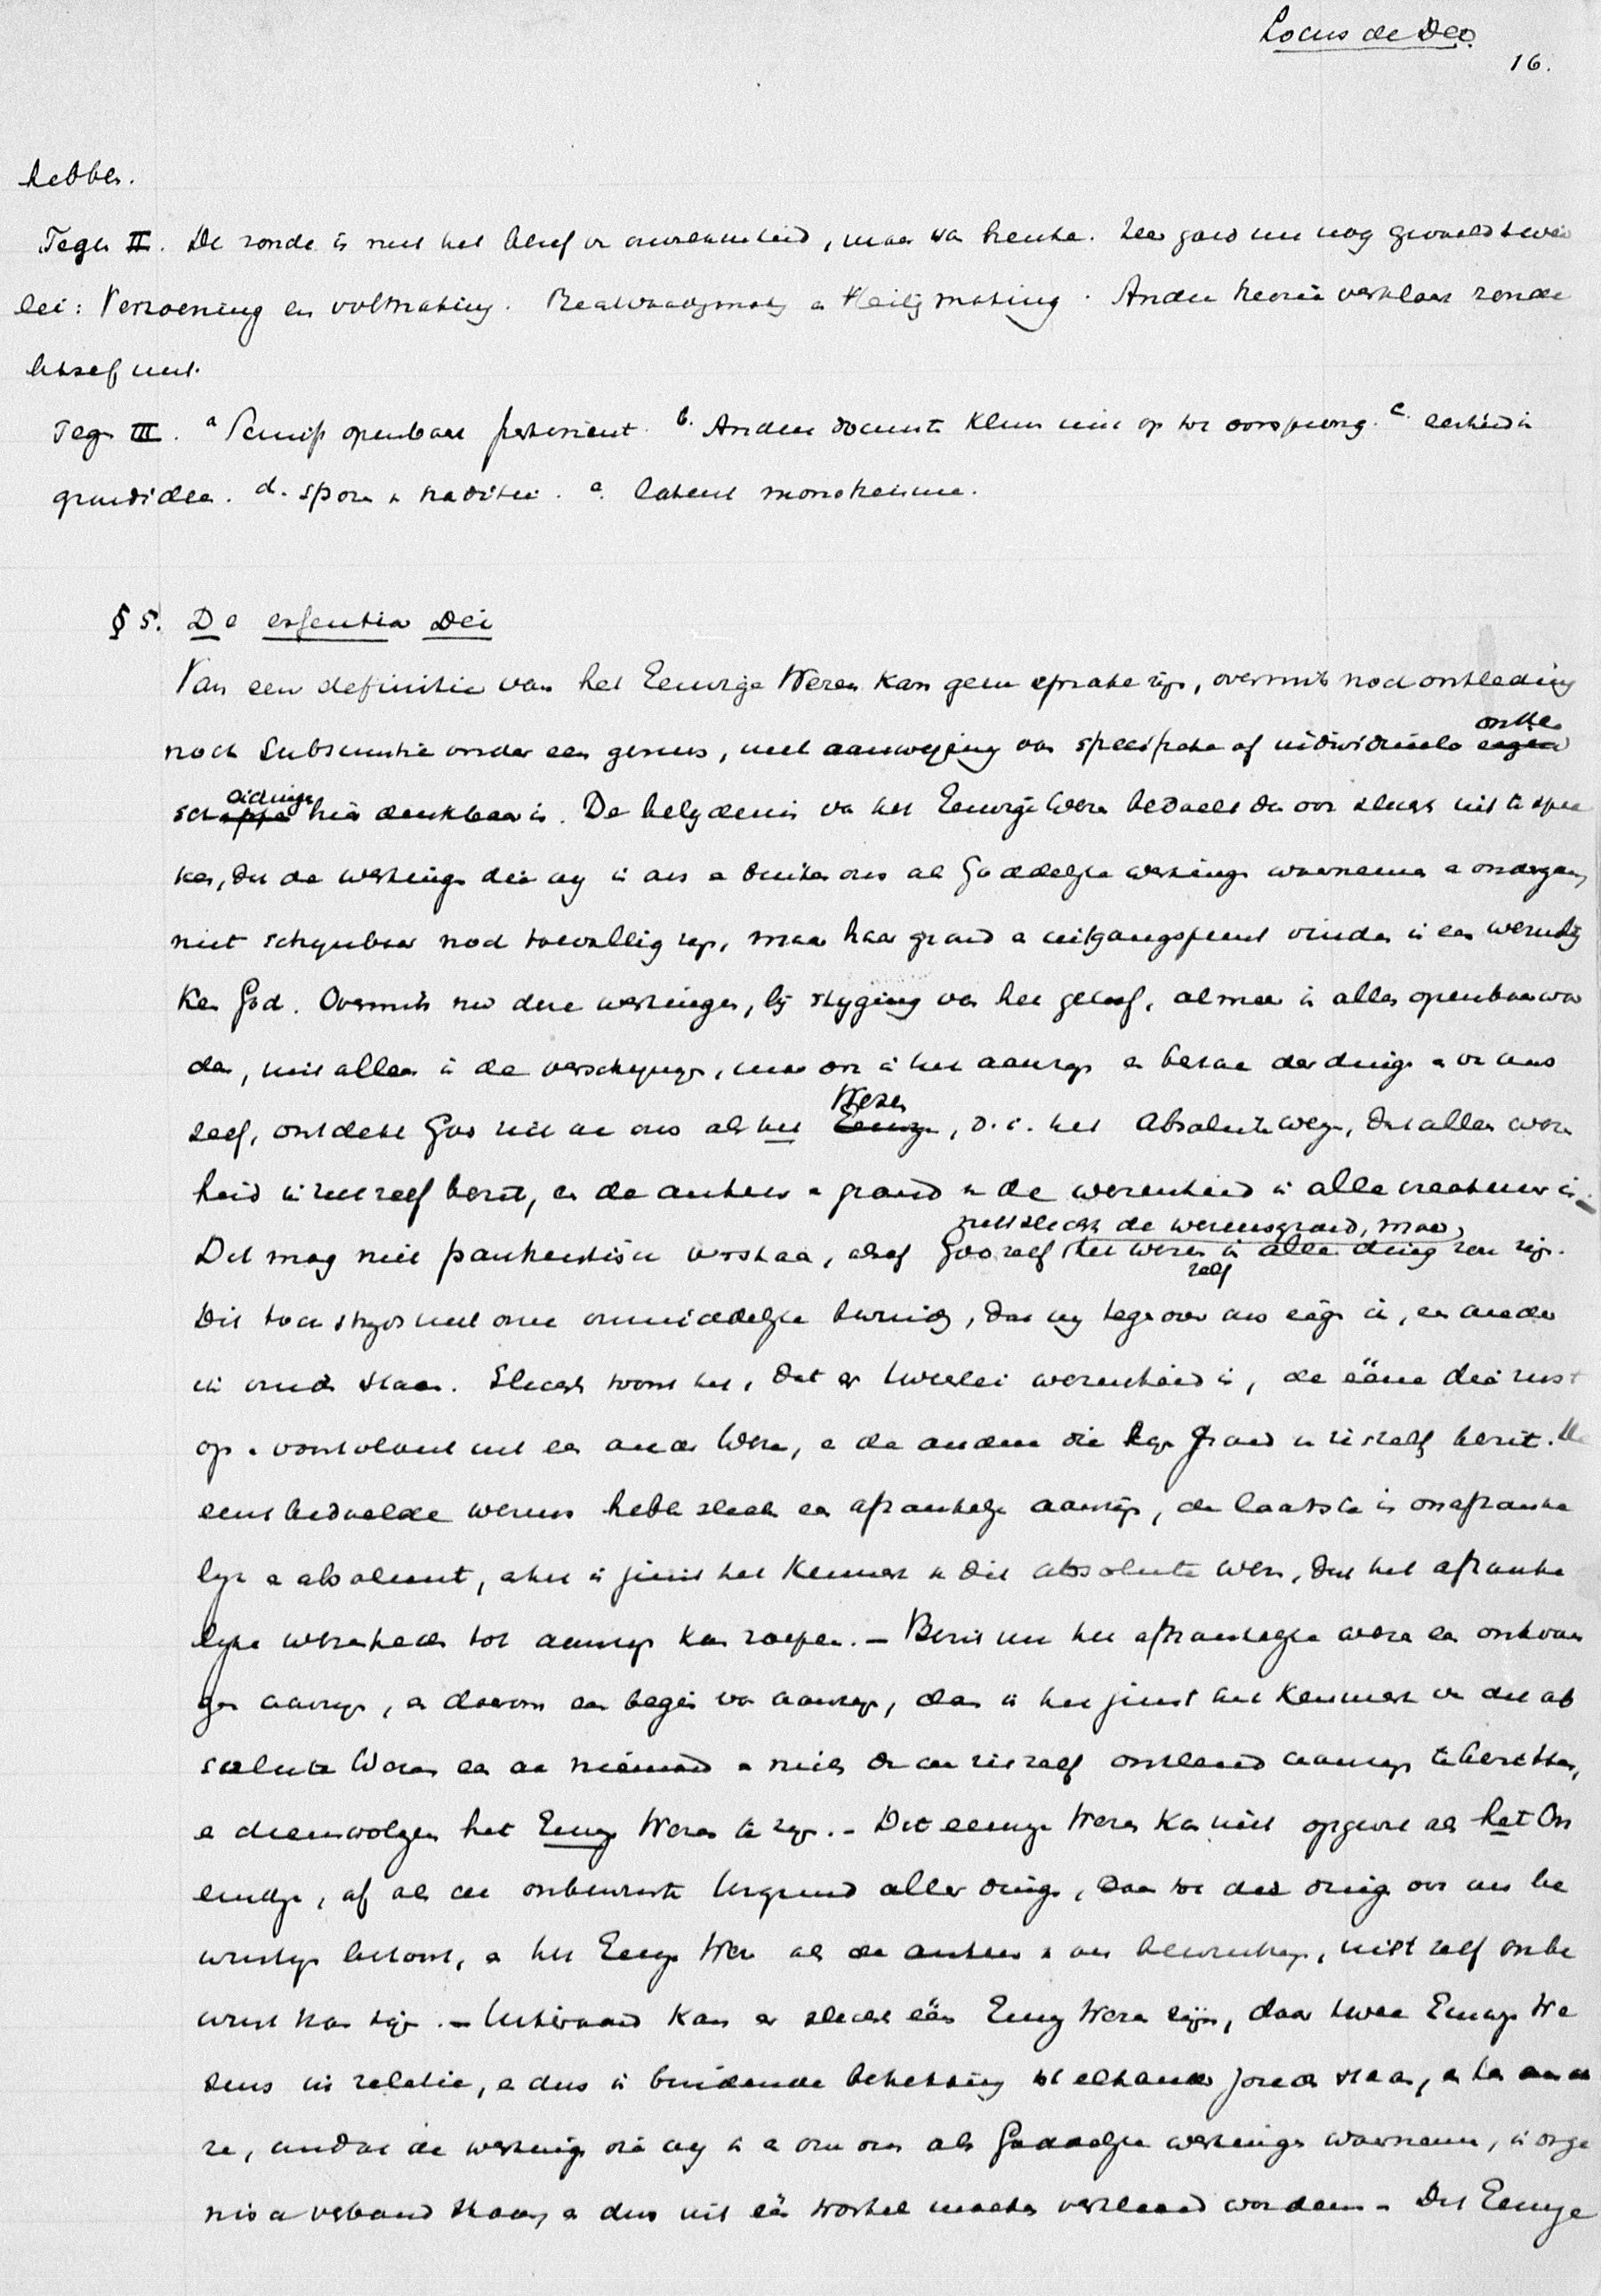 Locus de Deo.
16.
hebben.
Tegen II. De zonde is niet het besef van onvolkomenheid, maar van breuke. Zeer goed nu nog gevoeld twee
lei: Verzoening en volmaking. Rechtvaardigmaking en Heiligmaking. Andere theorie verklaart zonde
besef niet.
Tegen III. a Schrift openbaar b. Andere documenten klimmen niet op tot oorsprong. c. eenheid in
grondidee. d. sporen in traditie. e. latent monotheisme.
§ 5. De essentia Dei
Van een definitie van het Eeuwige Wezen kan geen sprake zijn, overmits noch ontleding
noch Subsumtie onder een genus, met aanwijzing van specifieke of individueele onder
scheidingen hier denkbaar is. De belydenis van het Eeuwige Wezen bedoelt dan ook slechts uit te spre
ken, dat de werkingen die wy in ons en buiten ons als Goddelyke werkingen waarnemen en ondergaan,
niet schynbaar noch toevallig zyn, maar haar grond en uitgangspunt vinden in een wezenly
ken God. Overmits nu deze werkingen, by styging van het geloof, al meer in alles openbaar wor
den, niet alleen in de verschynsels, maar ook in het aanzyn en bestaan der dingen en van ons
zelf, ontdekt God zich aan ons als het Wezen, d.i. het Absolute wezen, dat alle wezen
heid in zich zelf bezit, en de auteur en grond van de wezenheid in alle creatuur is.
niet slechts de wezensgrond, maar
Dit mag niet pantheistisch verstaan, alsof God zelf het wezen zelf in alle dingen zou zijn.
Dit toch strydt met onze onmiddellyke bewustz., dat wy tegenover ons eigen ik, een ander
ik vinden staan. Slechts toont het, dat er tweeërlei wezenheid is, de ééne die rust
op en voortvloeit uit een ander Wezen, en de andere die haar grond in zichzelf bezit. De
eerstbedoelde wezens hebben slechts een afhankelyk aanzijn, de laatste is onafhanke
lyk en absoluut, en het is juist het kenmerk van dit absolute wezen, dat het afhanke
lyke wezenheden tot aanzyn kan roepen. – Bezit nu het afhankelyke wezen een ontvan
gen aanzyn, en daarom een begin van aanzyn, dan is het juist het kenmerk van dit ab
solute Wezen een aan niemand en niets dan aan zichzelf ontleend aanzyn te bezitten,
en dienvolgens het Eeuwige Wezen te zyn. – Dit eeuwige Wezen kan niet opgevat als het On
eindige, of als de onbewuste Urgrund aller dingen, daar tot deze dingen ook ons be
wustzyn behoort, en het Eeuwige Wezen als de auteur van ons bewustzyn, niet zelf onbe
wust kan zijn. – Uiteraard kan er slechts één Eeuwig Wezen zijn, daar twee Eeuwige We
zens in relatie, en dus in bindende betrekking tot elkander zouden staan, en ten ande
re, omdat de werkingen die wy in en om ons als Goddelyke werkingen waarnemen, in orga
nisch verband staan, en dus uit één wortel moeten verklaard worden. – Dit Eeuwige